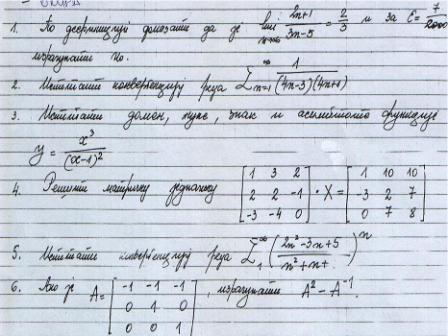 1. По дефиницији доказати да је lim n→∞ (2n+1)/(3n-5) = 2/3 и за ε = 7/2000
израчунати n₀.
2. Испитати конвергенцију реда Σ n=1 ∞ 1/((4n-3)(4n+1))
3. Испитати домен, нуле, знак и асимптоте функције
y = x³/(x-1)²
4. Решити матричну једначину [1 3 2; 2 2 -1; -3 -4 0] · X = [1 10 10; -3 2 7; 0 7 8]
5. Испитати конвергенцију реда Σ 1 ∞ ((2n²-3n+5)/(n²+n+.))ⁿ
6. Ако је A = [-1 -1 -1; 0 1 0; 0 0 1], израчунати A² - A⁻¹.